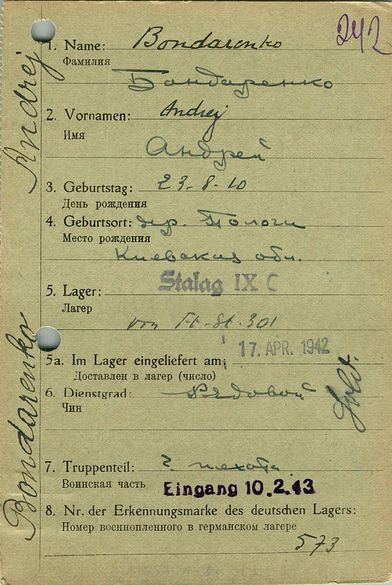 1. Name: Bondarenko
242
Фамилия
Бондаренко
2. Vornamen: Andrej
Имя
Андрей
3. Geburtstag: 23-8-10
День рождения
4. Geburtsort: дер. Пологи
Место рождения
Киевская обл.
5. Lager: Stalag IX C
Лагерь
von Ft-St. 301
5a. Im Lager eingeliefert am: 17. APR. 1942
Доставлен в лагерь (число)
6. Dienstgrad: Рядовой
Чин
Sold.
7. Truppenteil: пехота
Воинская часть
Eingang 10.2.43
8. Nr. der Erkennungsmarke des deutschen Lagers:
Номер военнопленного в германском лагере
573
Bondarenko Andrej